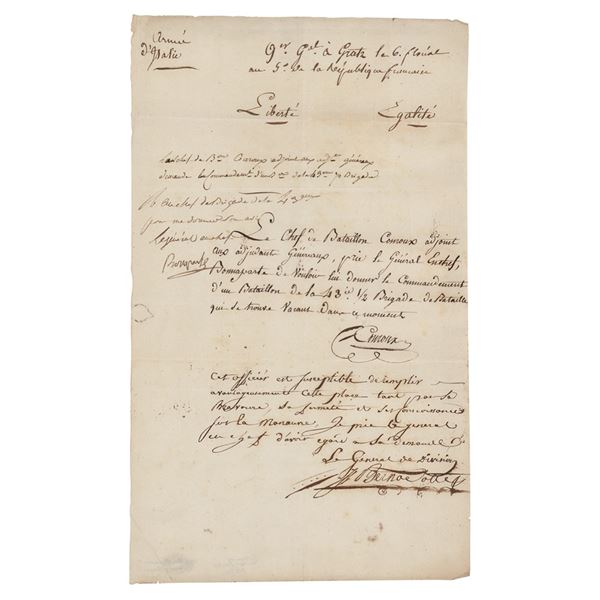 Armée
d'Italie
Qer Gal à Gratz le 6. floréal
au 5e de la République française
Liberté Egalité
chef de Bon Comoux adjoint aux adj. généraux
demande le Commandemt d'un Bon de la 43me ½ Brigade
au chef de Brigade de la 43me
pour me donner son avis
le général en chef
Bonaparte
Le Chef de Bataillon Comoux adjoint
aux adjudant Généraux, prie le Général Enchef,
Bonnaparte de Vouloir lui donner le Commandement
d'un Bataillon de la 43ie ½ Brigade de Bataille
qui se trouve Vacant dans ce moment
Comoux
Cet officier est susceptible de remplir
avantageusement cette place tant par sa
Bravoure, sa fermeté et ses connoissances
sur la Manœuvre. Je prie le general
en chef d'avoir egard a sa demande
Le General de Division
J Bernadotte